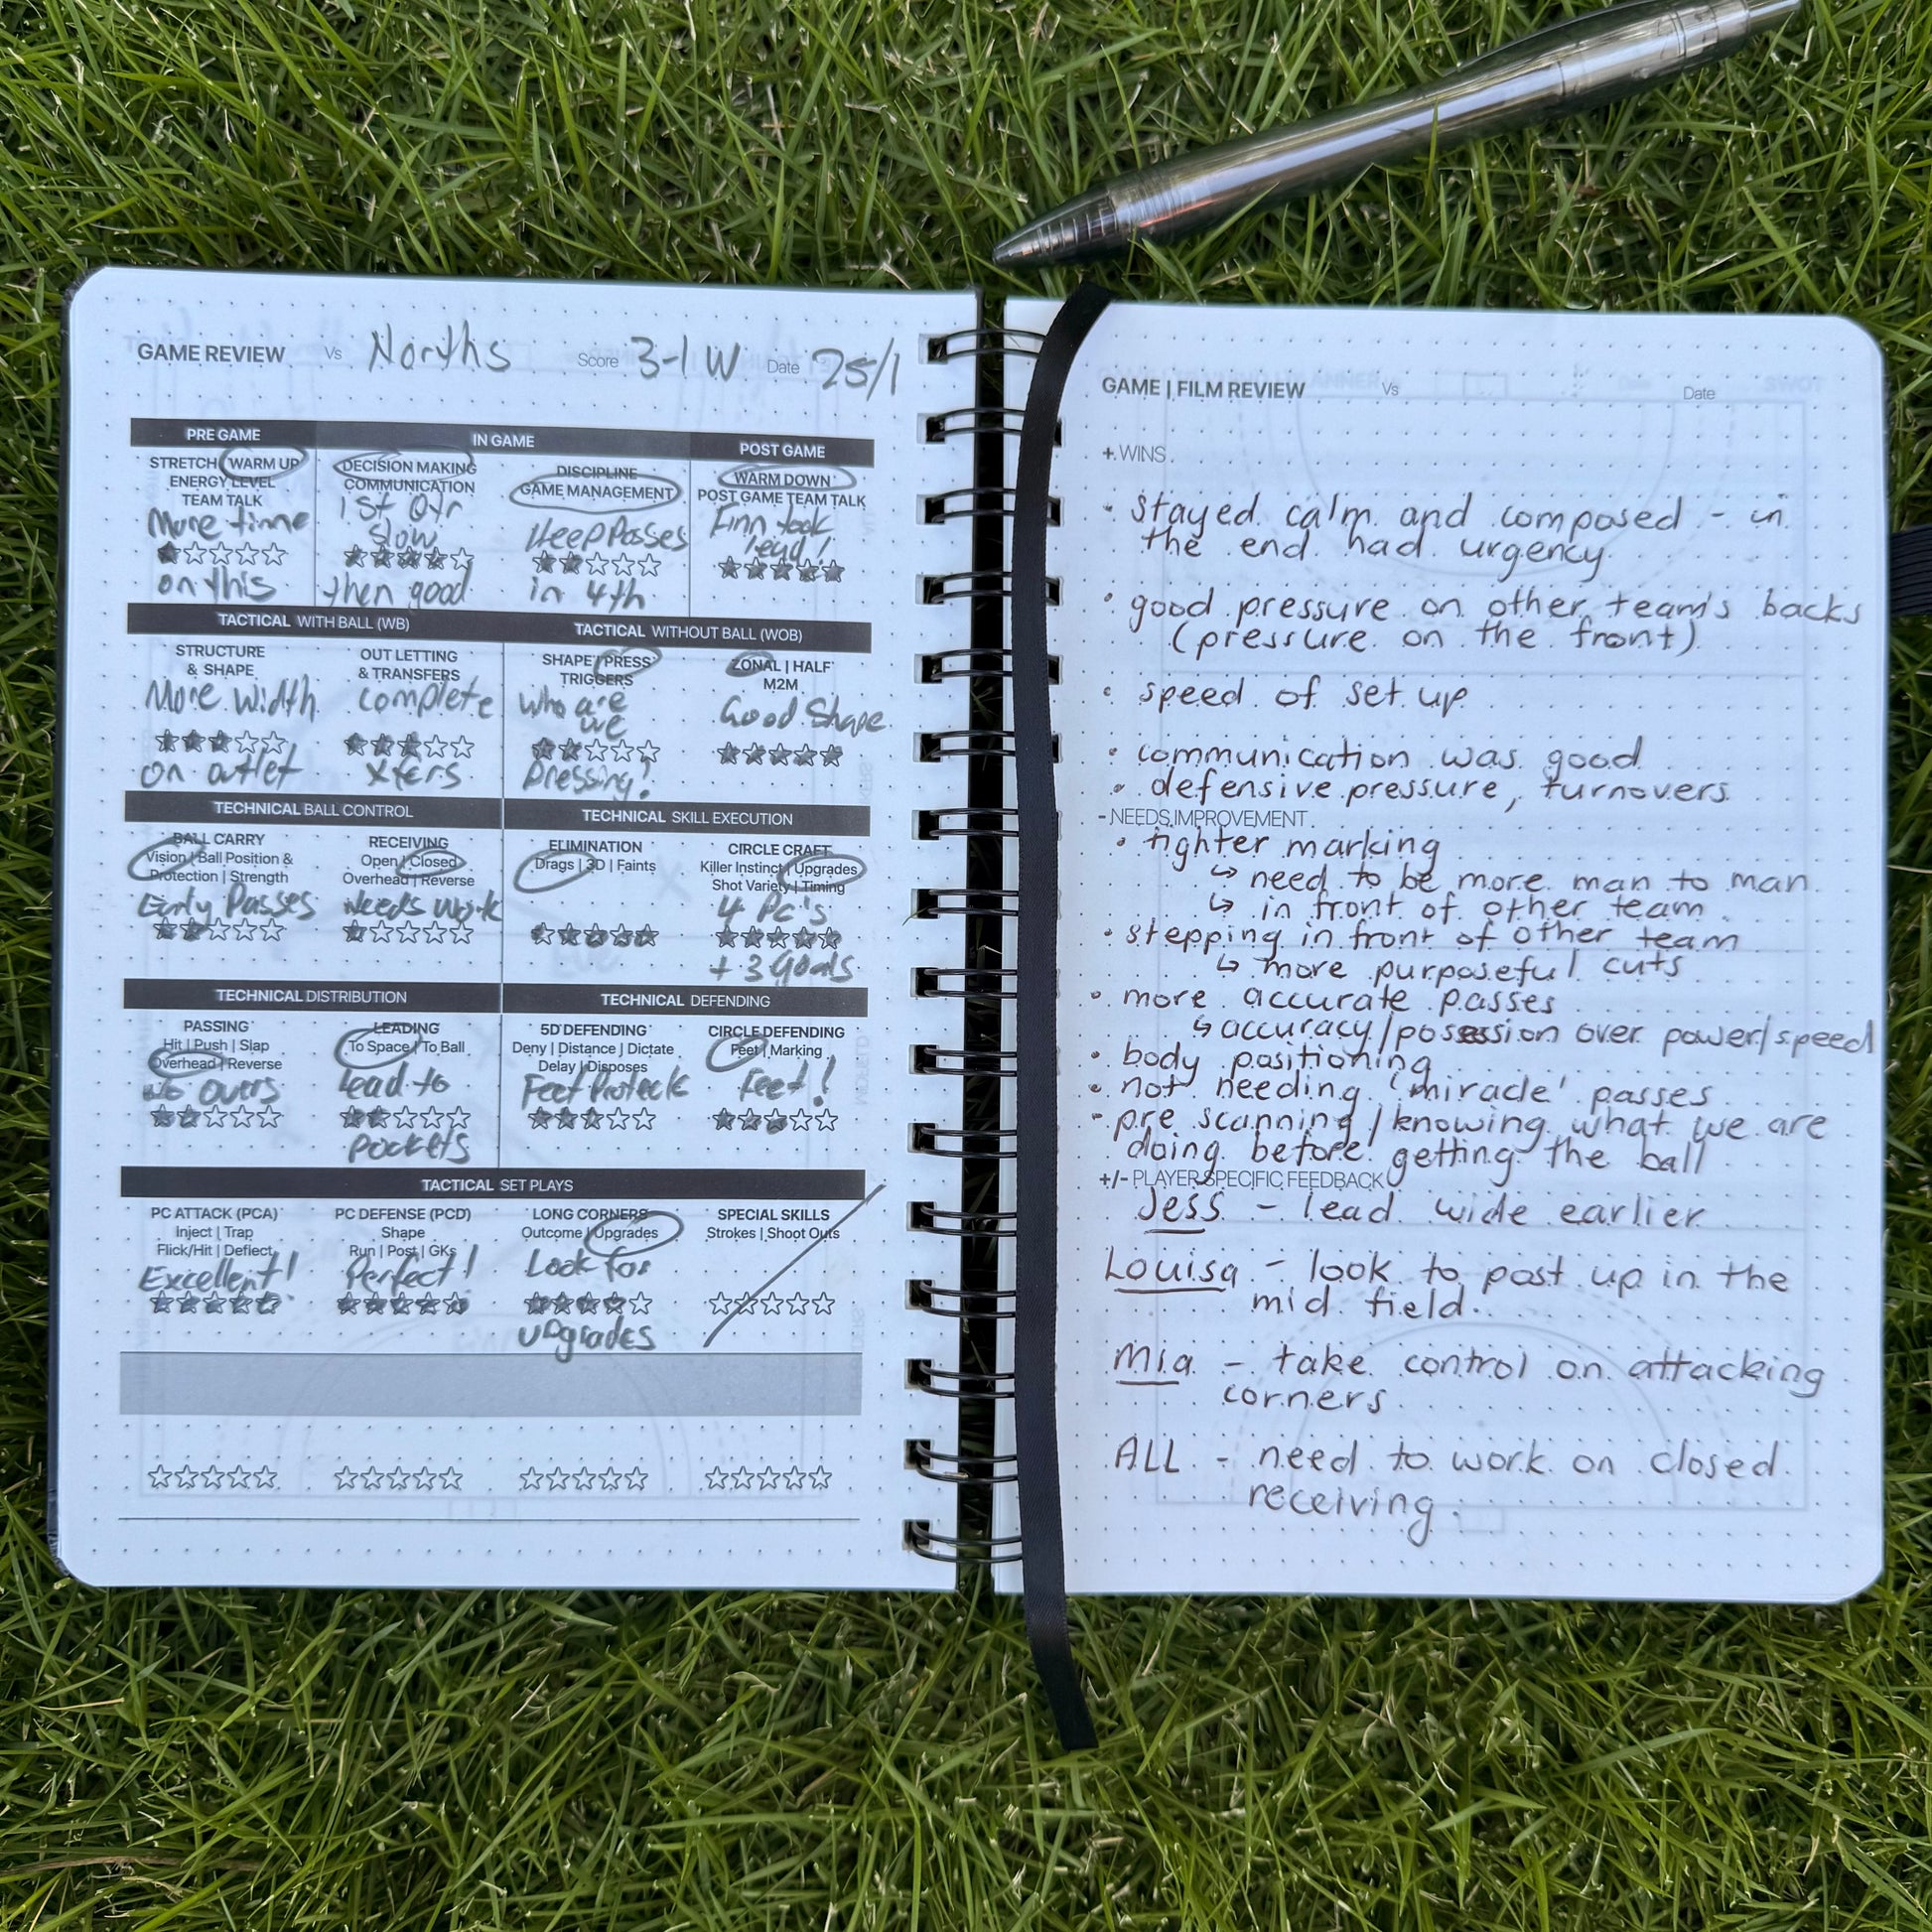 GAME REVIEW Vs Norths Score 3-1 W Date 25/1
PRE GAME IN GAME POST GAME
STRETCH WARM UP
ENERGY LEVEL
TEAM TALK
More time
on this
DECISION MAKING
COMMUNICATION
1st Qtr
Slow
then good
DISCIPLINE
GAME MANAGEMENT
Keep Passes
in 4th
WARM DOWN
POST GAME TEAM TALK
Finn took
lead!
TACTICAL WITH BALL (WB) TACTICAL WITHOUT BALL (WOB)
STRUCTURE
& SHAPE
More Width
on outlet
OUT LETTING
& TRANSFERS
complete
xfers
SHAPE PRESS
TRIGGERS
Who are
we
Pressing!
ZONAL | HALF
M2M
Good Shape
TECHNICAL BALL CONTROL TECHNICAL SKILL EXECUTION
BALL CARRY
Vision | Ball Position &
Protection | Strength
Early Passes
RECEIVING
Open | Closed
Overhead | Reverse
Needs work
ELIMINATION
Drags | 3D | Faints
CIRCLE CRAFT
Killer Instinct | Upgrades
Shot Variety | Timing
4 PC's
+ 3 goals
TECHNICAL DISTRIBUTION TECHNICAL DEFENDING
PASSING
Hit | Push | Slap
Overhead | Reverse
No overs
LEADING
To Space | To Ball
Lead to
pockets
5D DEFENDING
Deny | Distance | Dictate
Delay | Disposes
Feet Protect
CIRCLE DEFENDING
Feet | Marking
Feet!
TACTICAL SET PLAYS
PC ATTACK (PCA)
Inject | Trap
Flick/Hit | Deflect
Excellent!
PC DEFENSE (PCD)
Shape
Run | Post | GKs
Perfect!
LONG CORNERS
Outcome | Upgrades
Look for
upgrades
SPECIAL SKILLS
Strokes | Shoot Outs
GAME | FILM REVIEW Vs Date
+ WINS
• stayed calm and composed - in
the end had urgency
• good pressure on other team's backs
(pressure on the front)
• speed of set up
• communication was good
• defensive pressure, turnovers
- NEEDS IMPROVEMENT
• tighter marking
↳ need to be more man to man
↳ in front of other team
• stepping in front of other team
↳ more purposeful cuts
• more accurate passes
↳ accuracy/possession over power/speed
• body positioning
• not needing 'miracle' passes
• pre scanning/knowing what we are
doing before getting the ball
+/- PLAYER SPECIFIC FEEDBACK
Jess - lead wide earlier
Louisa - look to post up in the
mid field.
Mia - take control on attacking
corners
ALL - need to work on closed
receiving.